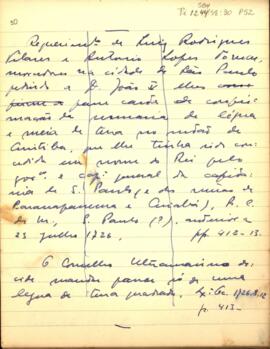 50
Requerimto de Luiz Rodrigues
Vilares e Antonio Lopes Tomas,
moradores na cidade de São Paulo
pedindo a D. João V lhes
passe carta de confir-
mação de sesmaria de légua
e meia de terra no sertão de
Curitiba, que lhe tinha sido con-
cedida em nome do Rei pelo
govr. e capi geral da capita-
nia de S. Paulo, e das minas de
Paranapanema e Cuiabá, R. C.
de M., S. Paulo (?), anterior a
23 julho 1726. pp. 412-13.
O Conselho Ultramarino de-
cide mandar passar só de uma
légua de terra quadrada. 
p. 413